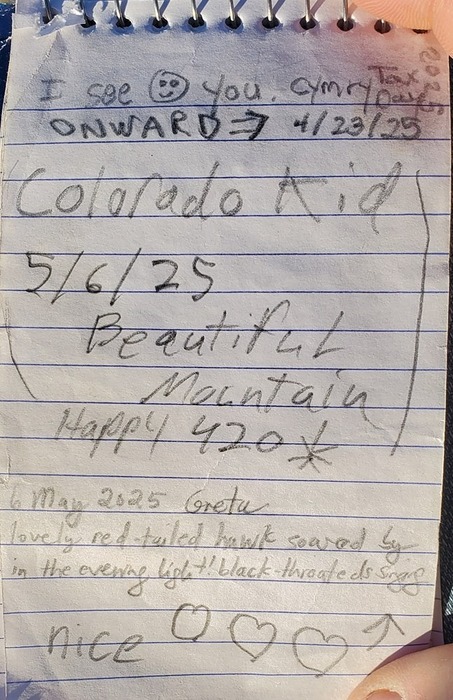 I see ☺ you. Cymry Tax Day 2025
ONWARD ⇒ 4/23/25
Colorado Kid
5/6/25
Beautiful
Mountain
Happy 420
6 May 2025 Greta
lovely red-tailed hawk soared by
in the evening light! black-throateds singing
nice ♡ ♡ ♡ ↑